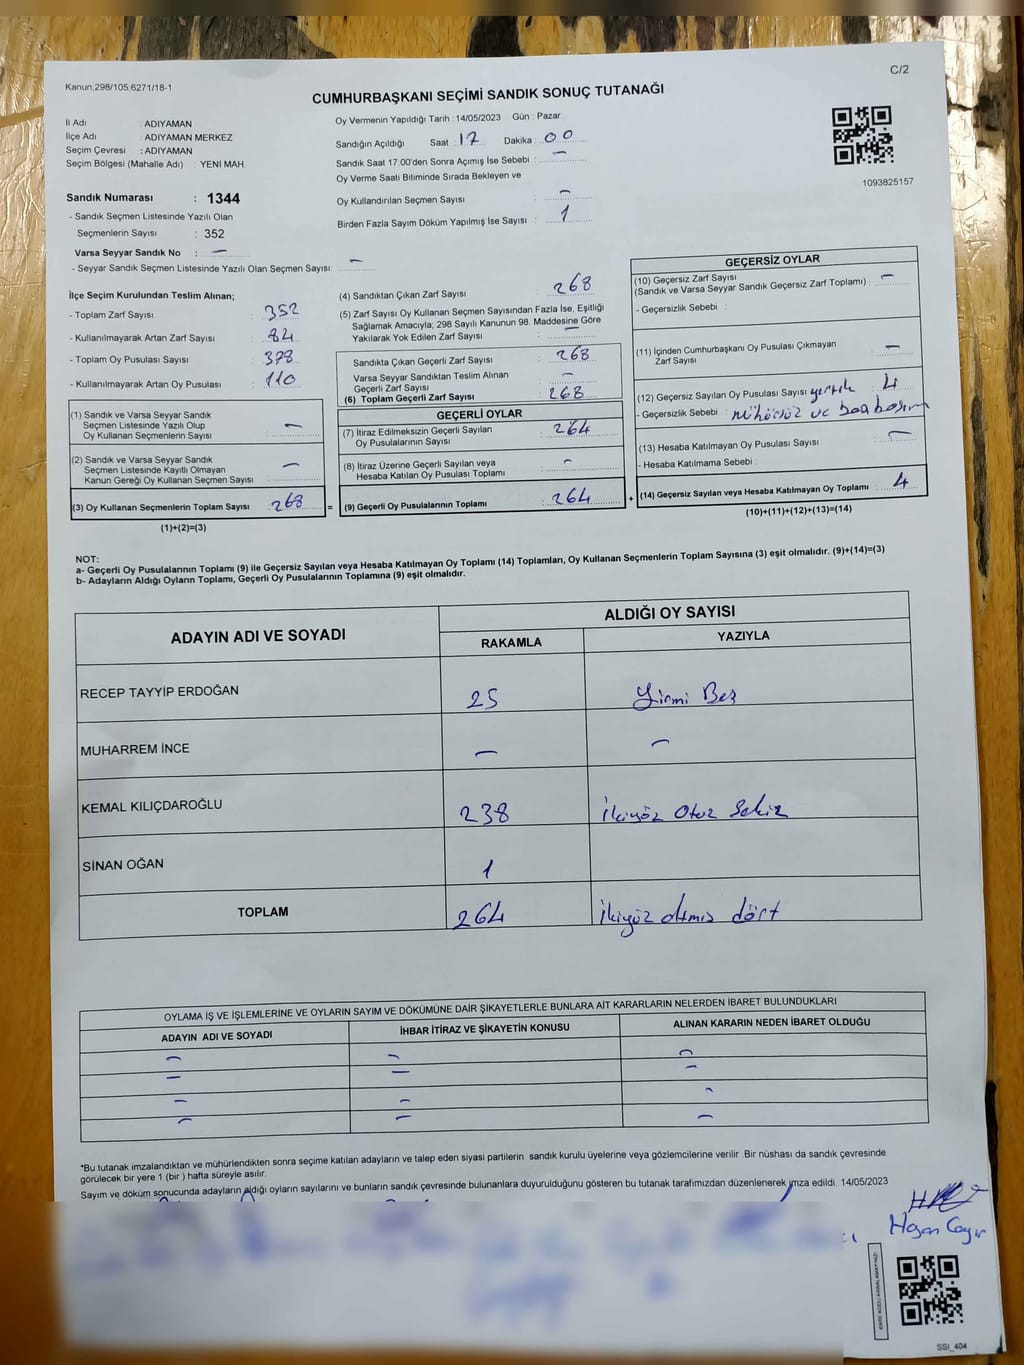 Kanun:298/105;6271/18-1
C/2
CUMHURBAŞKANI SEÇİMİ SANDIK SONUÇ TUTANAĞI
İl Adı : ADIYAMAN
İlçe Adı : ADIYAMAN MERKEZ
Seçim Çevresi : ADIYAMAN
Seçim Bölgesi (Mahalle Adı) : YENİ MAH.
Sandık Numarası : 1344
- Sandık Seçmen Listesinde Yazılı Olan
Seçmenlerin Sayısı : 352
Varsa Seyyar Sandık No : –
- Seyyar Sandık Seçmen Listesinde Yazılı Olan Seçmen Sayısı: –
Oy Vermenin Yapıldığı Tarih : 14/05/2023 Gün : Pazar
Sandığın Açıldığı Saat : 17 Dakika : 00
Sandık Saat 17:00'den Sonra Açımış İse Sebebi : –
Oy Verme Saati Bitiminde Sırada Bekleyen ve
Oy Kullandırılan Seçmen Sayısı : –
Birden Fazla Sayım Döküm Yapılmış İse Sayısı : 1
1093825157
İlçe Seçim Kurulundan Teslim Alınan;
- Toplam Zarf Sayısı : 352
- Kullanılmayarak Artan Zarf Sayısı : 84
- Toplam Oy Pusulası Sayısı : 378
- Kullanılmayarak Artan Oy Pusulası : 110
(1) Sandık ve Varsa Seyyar Sandık
Seçmen Listesinde Yazılı Olup
Oy Kullanan Seçmenlerin Sayısı : –
(2) Sandık ve Varsa Seyyar Sandık
Seçmen Listesinde Kayıtlı Olmayan
Kanun Gereği Oy Kullanan Seçmen Sayısı : –
(3) Oy Kullanan Seçmenlerin Toplam Sayısı : 268 =
(1)+(2)=(3)
(4) Sandıktan Çıkan Zarf Sayısı : 268
(5) Zarf Sayısı Oy Kullanan Seçmen Sayısından Fazla İse, Eşitliği
Sağlamak Amacıyla; 298 Sayılı Kanunun 98. Maddesine Göre
Yakılarak Yok Edilen Zarf Sayısı : –
Sandıkta Çıkan Geçerli Zarf Sayısı : 268
Varsa Seyyar Sandıktan Teslim Alınan
Geçerli Zarf Sayısı : –
(6) Toplam Geçerli Zarf Sayısı : 268
GEÇERLİ OYLAR
(7) İtiraz Edilmeksizin Geçerli Sayılan
Oy Pusulalarının Sayısı : 264
(8) İtiraz Üzerine Geçerli Sayılan veya
Hesaba Katılan Oy Pusulası Toplamı : –
(9) Geçerli Oy Pusulalarının Toplamı : 264 +
GEÇERSİZ OYLAR
(10) Geçersiz Zarf Sayısı
(Sandık ve Varsa Seyyar Sandık Geçersiz Zarf Toplamı) : –
- Geçersizlik Sebebi :
(11) İçinden Cumhurbaşkanı Oy Pusulası Çıkmayan
Zarf Sayısı : –
(12) Geçersiz Sayılan Oy Pusulası Sayısı yırtık 4
- Geçersizlik Sebebi : mühürsüz ve boş
(13) Hesaba Katılmayan Oy Pusulası Sayısı : –
- Hesaba Katılmama Sebebi :
(14) Geçersiz Sayılan veya Hesaba Katılmayan Oy Toplamı : 4
(10)+(11)+(12)+(13)=(14)
NOT:
a- Geçerli Oy Pusulalarının Toplamı (9) ile Geçersiz Sayılan veya Hesaba Katılmayan Oy Toplamı (14) Toplamları, Oy Kullanan Seçmenlerin Toplam Sayısına (3) eşit olmalıdır. (9)+(14)=(3)
b- Adayların Aldığı Oyların Toplamı, Geçerli Oy Pusulalarının Toplamına (9) eşit olmalıdır.
ADAYIN ADI VE SOYADI
ALDIĞI OY SAYISI
RAKAMLA YAZIYLA
RECEP TAYYİP ERDOĞAN 25 Yirmi Beş
MUHARREM İNCE – –
KEMAL KILIÇDAROĞLU 238 İkiyüz Otuz Sekiz
SİNAN OĞAN 1
TOPLAM 264 İkiyüz altmış dört
OYLAMA İŞ VE İŞLEMLERİNE VE OYLARIN SAYIM VE DÖKÜMÜNE DAİR ŞİKAYETLERLE BUNLARA AİT KARARLARIN NELERDEN İBARET BULUNDUKLARI
ADAYIN ADI VE SOYADI İHBAR İTİRAZ VE ŞİKAYETİN KONUSU ALINAN KARARIN NEDEN İBARET OLDUĞU
– – –
– – –
– – –
– – –
*Bu tutanak imzalandıktan ve mühürlendikten sonra seçime katılan adayların ve talep eden siyasi partilerin sandık kurulu üyelerine veya gözlemcilerine verilir .Bir nüshası da sandık çevresinde
görülecek bir yere 1 (bir ) hafta süreyle asılır.
Sayım ve döküm sonucunda adayların aldığı oyların sayılarını ve bunların sandık çevresinde bulunanlara duyurulduğunu gösteren bu tutanak tarafımızdan düzenlenerek imza edildi. 14/05/2023
SSI_404